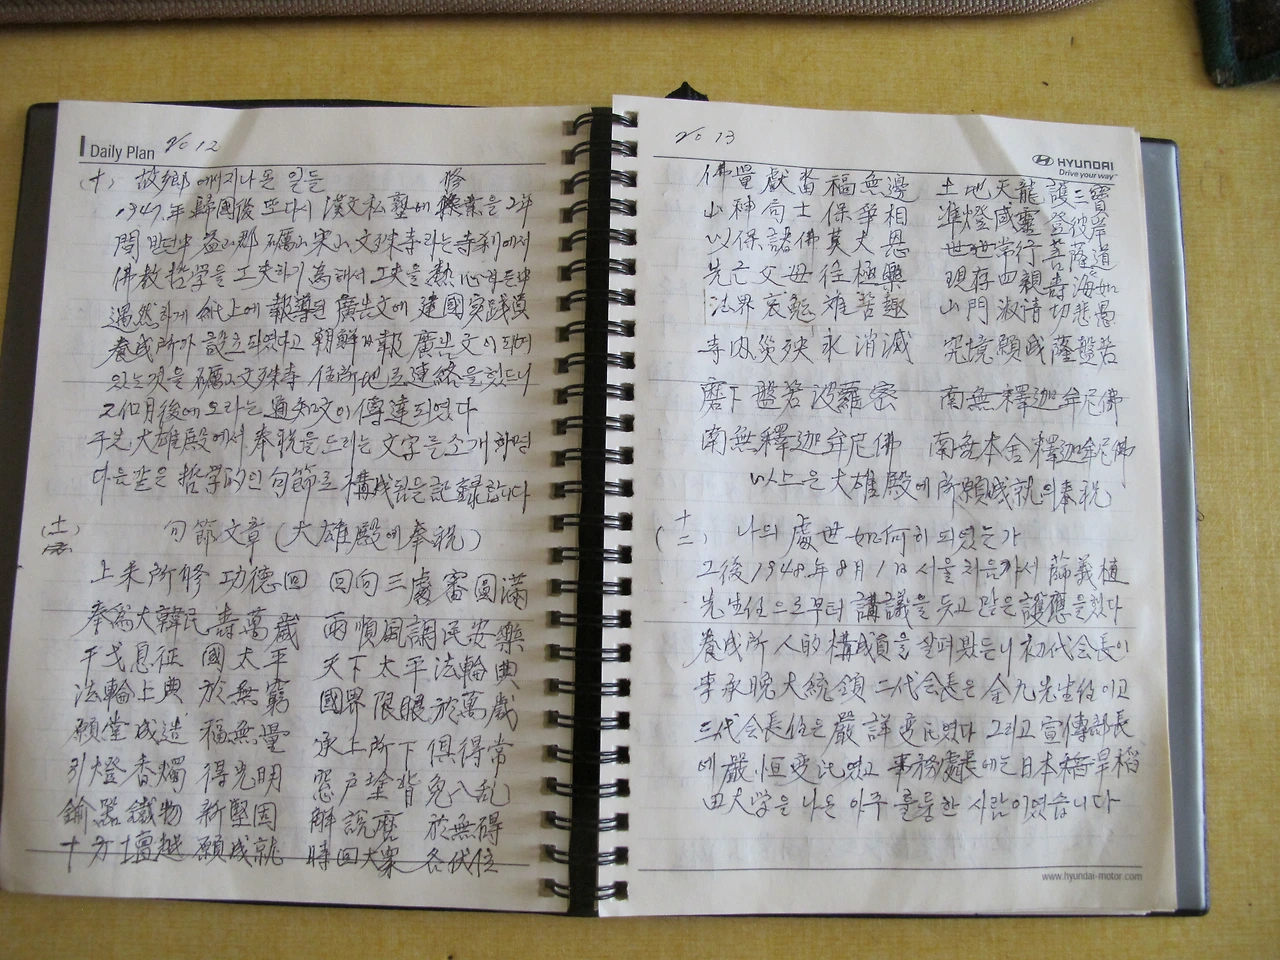 Daily Plan No 12
(十) 故鄕에서 지나온 일들
修
1947年 歸國後 또다시 漢文私塾에 業을 2年
間 받던中 益山郡 礪山 宋山 文殊寺라는 寺刹에서
佛敎哲学을 工夫하기 為해서 工夫을 熱心히 든中
遇然하게 紙上에 報導된 廣告文에 建國実践員
養成所가 設立되였다고 朝鮮日報 廣告文이 되여
있는것을 礪山文殊寺 住所地로 連絡을 했드니
2個月後에 오라는 通知文이 傳達되였다
于先 大雄殿에서 奉祝을 드리는 文字를 소개하면
다음같은 哲学的인 句節로 構成됨을 記錄합니다
(十一) 句節文章 (大雄殿에 奉祝)
上来所修 功德回 回向三處審圓滿
奉為大韓民 壽萬歲 雨順風調民安樂
干戈息征 國太平 天下太平法輪典
法輪上典 於無窮 國界限眼於萬歲
願堂成造 福無量 承上所下 俱得常
引燈香燭 得光明 窓戶塗背 免八乱
鍮器鐵物 新堅固 解說 於無碍
十方壇越 願成就 時回大衆 各伏位
No 13
HYUNDAI
Drive your way
佛 獻畓福無邊 土地天龍護三寶
山神局士保爭相 準燈威靈登彼岸
以保諸佛莫大恩 世世常行菩薩道
先亡父母往極樂 現存四親壽海如
法界哀 離苦趣 山門淑清切悲愚
寺內災殃永消滅 究境願成薩盤若
磨下盤若波羅密 南無釋迦牟尼佛
南無釋迦牟尼佛 南無本舍釋迦牟尼佛
以上은 大雄殿에 所願成就의 奉祝
(十二) 나의 處世 如何히 되였는가
그後 1948年 8月 1日 서울 처음가서 薛義植
先生任으로부터 講議을 듯고 많은 護應을 했다
養成所 人的構成員을 살펴봤든니 初代会長이
李承晩 大統領 二代会長은 金九先生任이고
三代会長任은 嚴詳燮氏였다 그리고 宣傳部長
에 嚴恒燮氏였고 事務處長에는 日本 早稻
田大学을 나온 아주 훌륭한 사람이였습니다
www.hyundai-motor.com